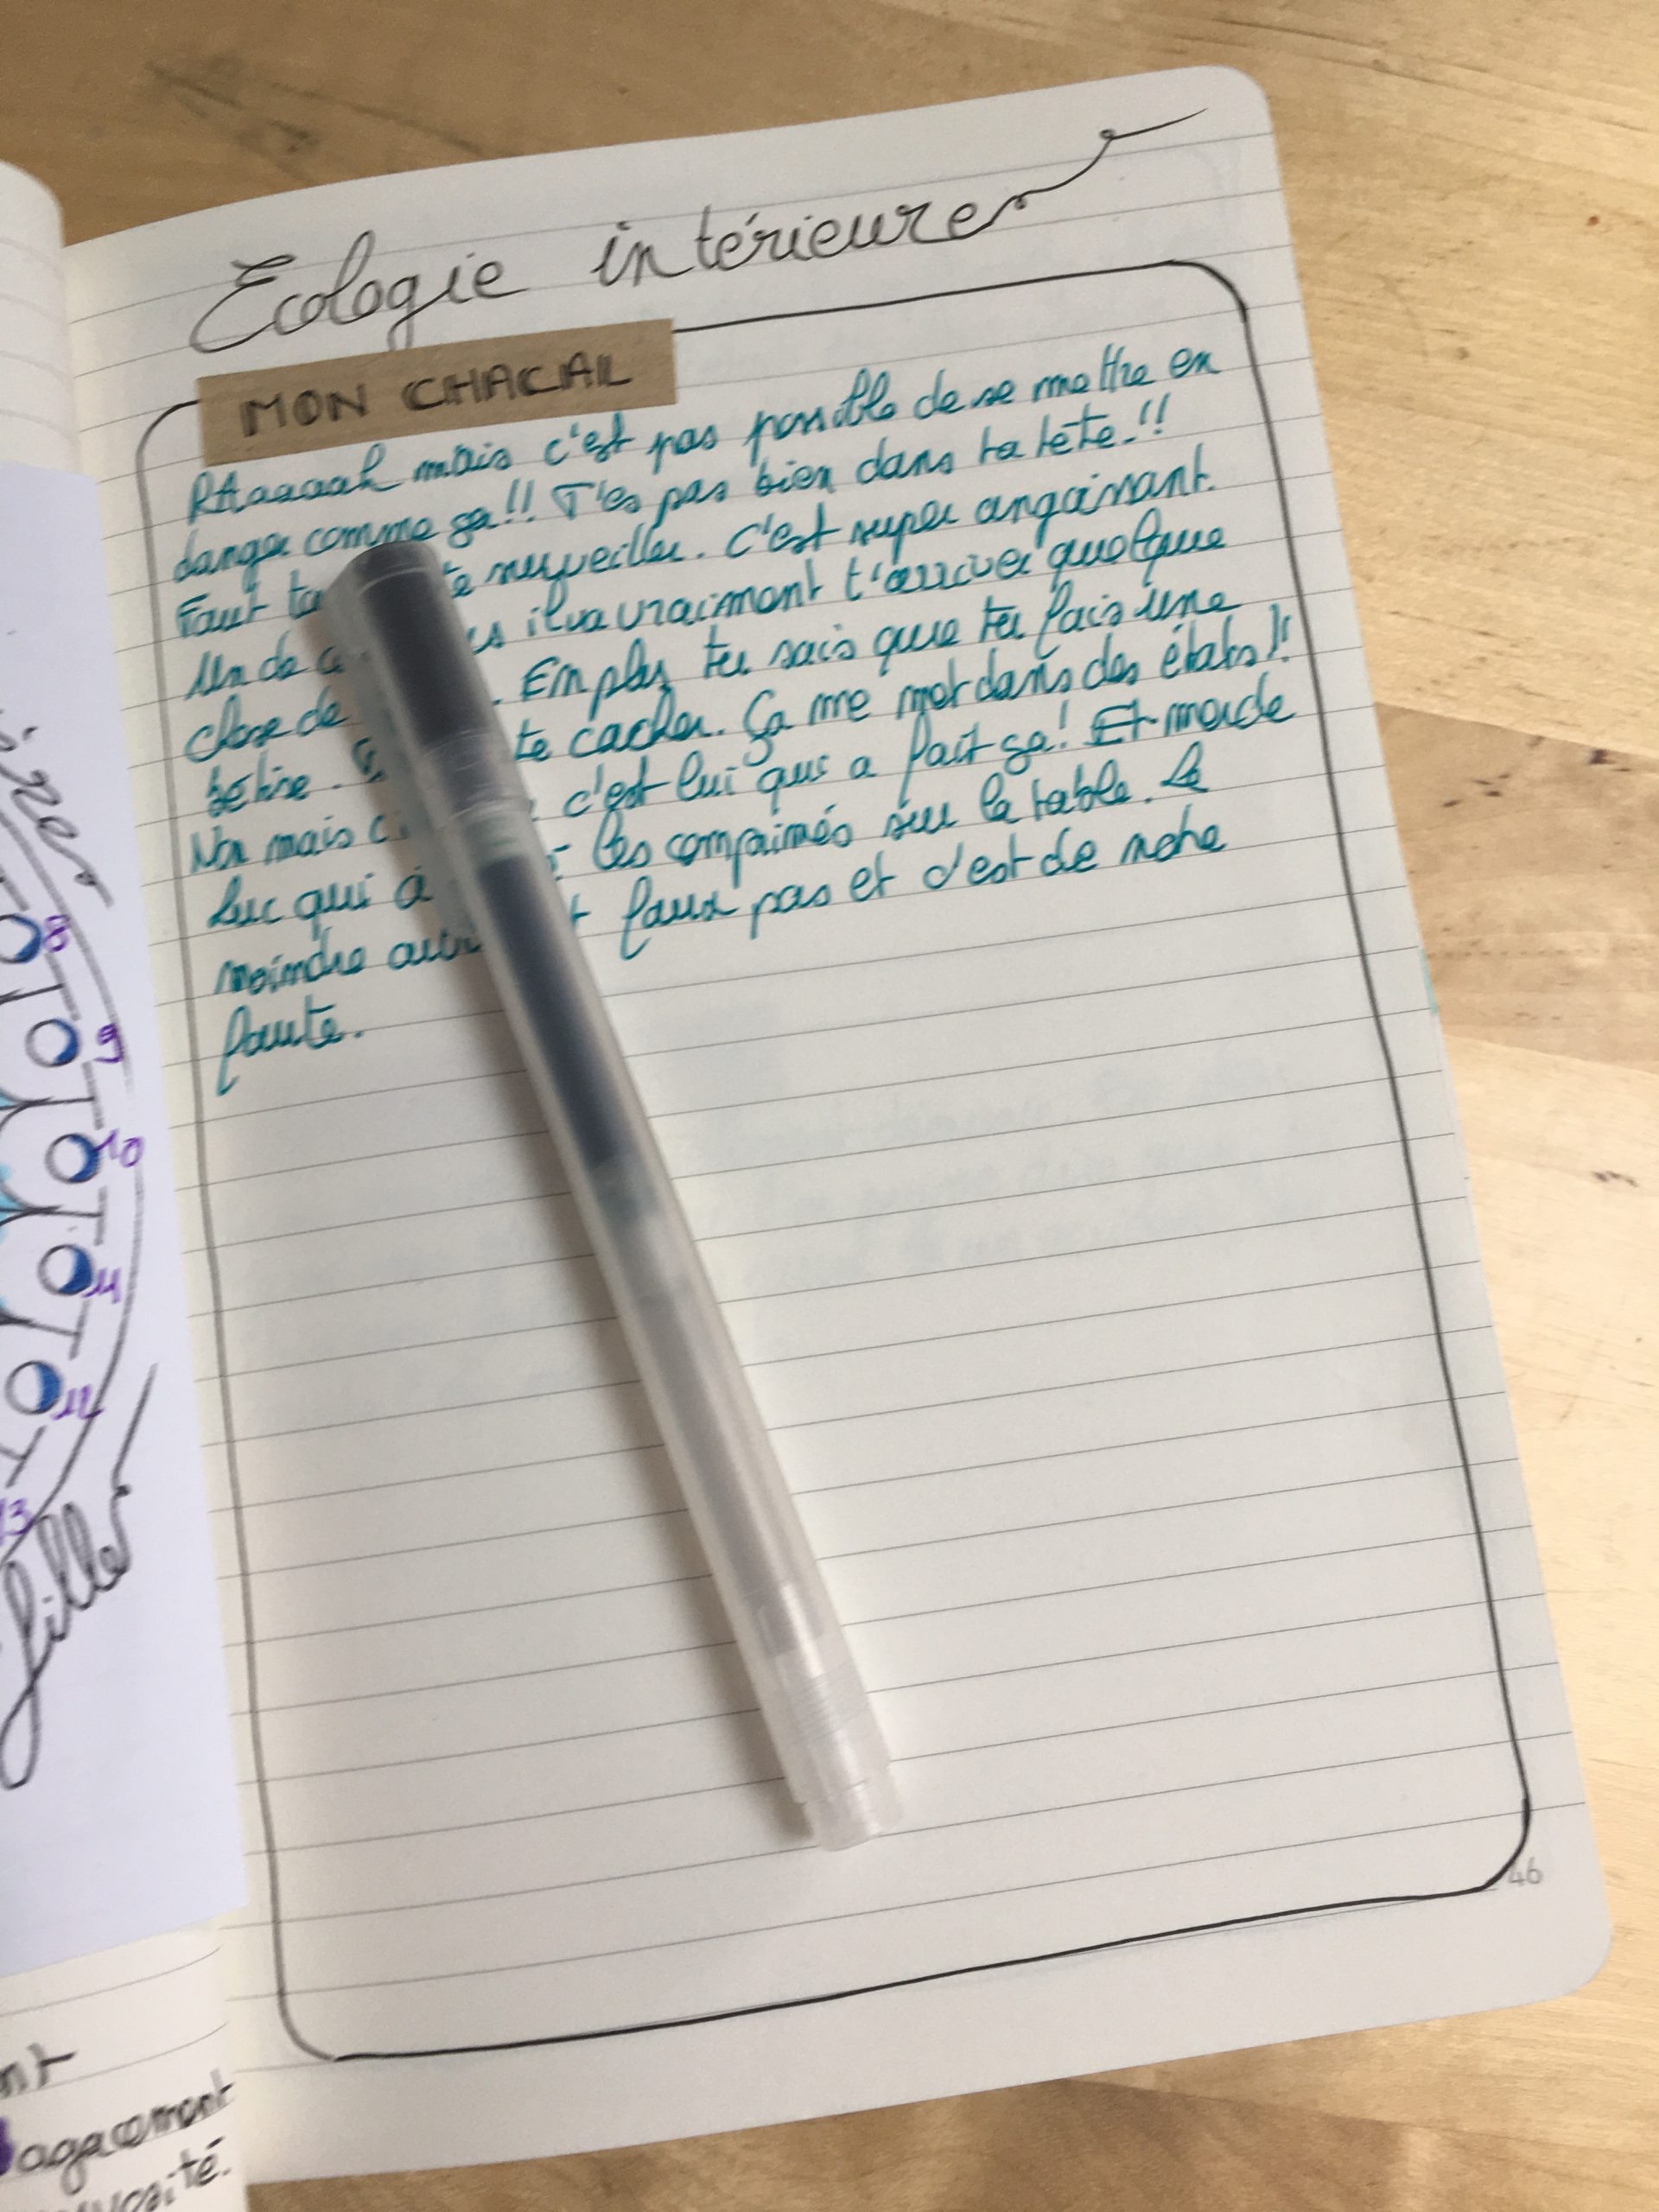 Ecologie intérieure
MON CHACAL
RAaaaah mais c'est pas possible de se mettre en
danger comme ça!! T'es pas bien dans ta tête.!!
Faut te surveiller. C'est super angoissant.
Un de il va vraiment t'arriver quelque
chose de . En plus tu sais que tu fais une
bêtise. te cacher. Ça me met dans des états!!
Non mais c'est lui qui a fait ça! Et merde
Luc qui à les comprimés sur la table. Le
moindre faux pas et c'est de notre
faute.
46
8
9
10
11
12
13
filles
agacement